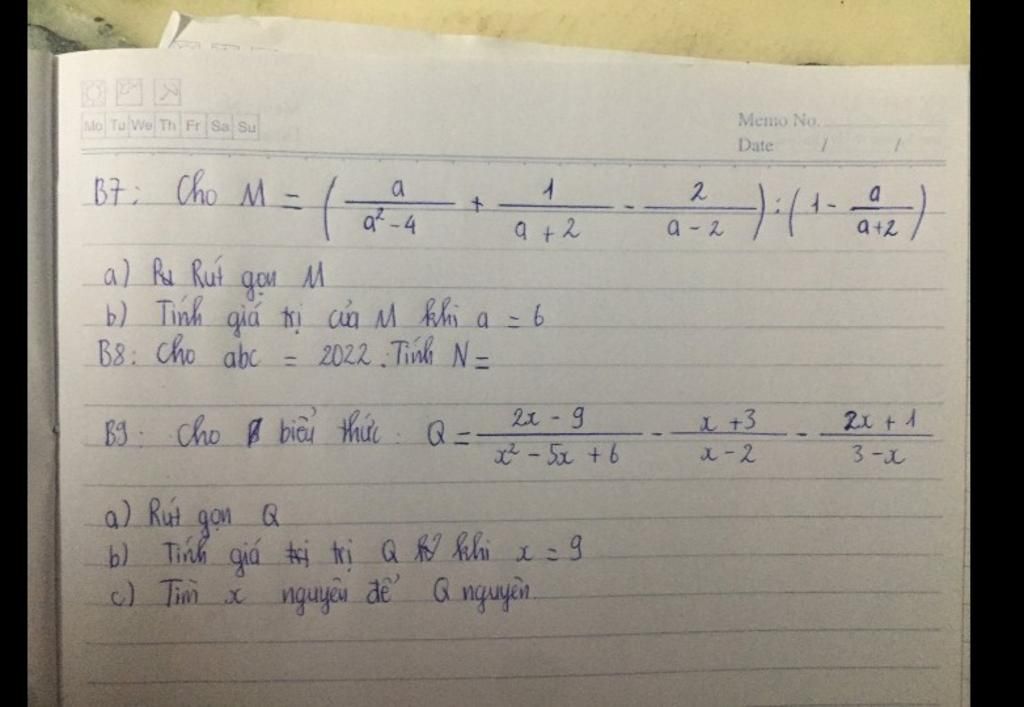 Mo Tu We Th Fr Sa Su
Memo No.
Date / /
B7: Cho M = ( a/(a² - 4) + 1/(a + 2) - 2/(a - 2) ) : ( 1 - a/(a+2) )
a) Rút gọn M
b) Tính giá trị của M khi a = 6
B8: Cho abc = 2022. Tính N =
B9: Cho biểu thức: Q = (2x - 9)/(x² - 5x + 6) - (x + 3)/(x - 2) - (2x + 1)/(3 - x)
a) Rút gọn Q
b) Tính giá trị Q khi x = 9
c) Tìm x nguyên để Q nguyên.